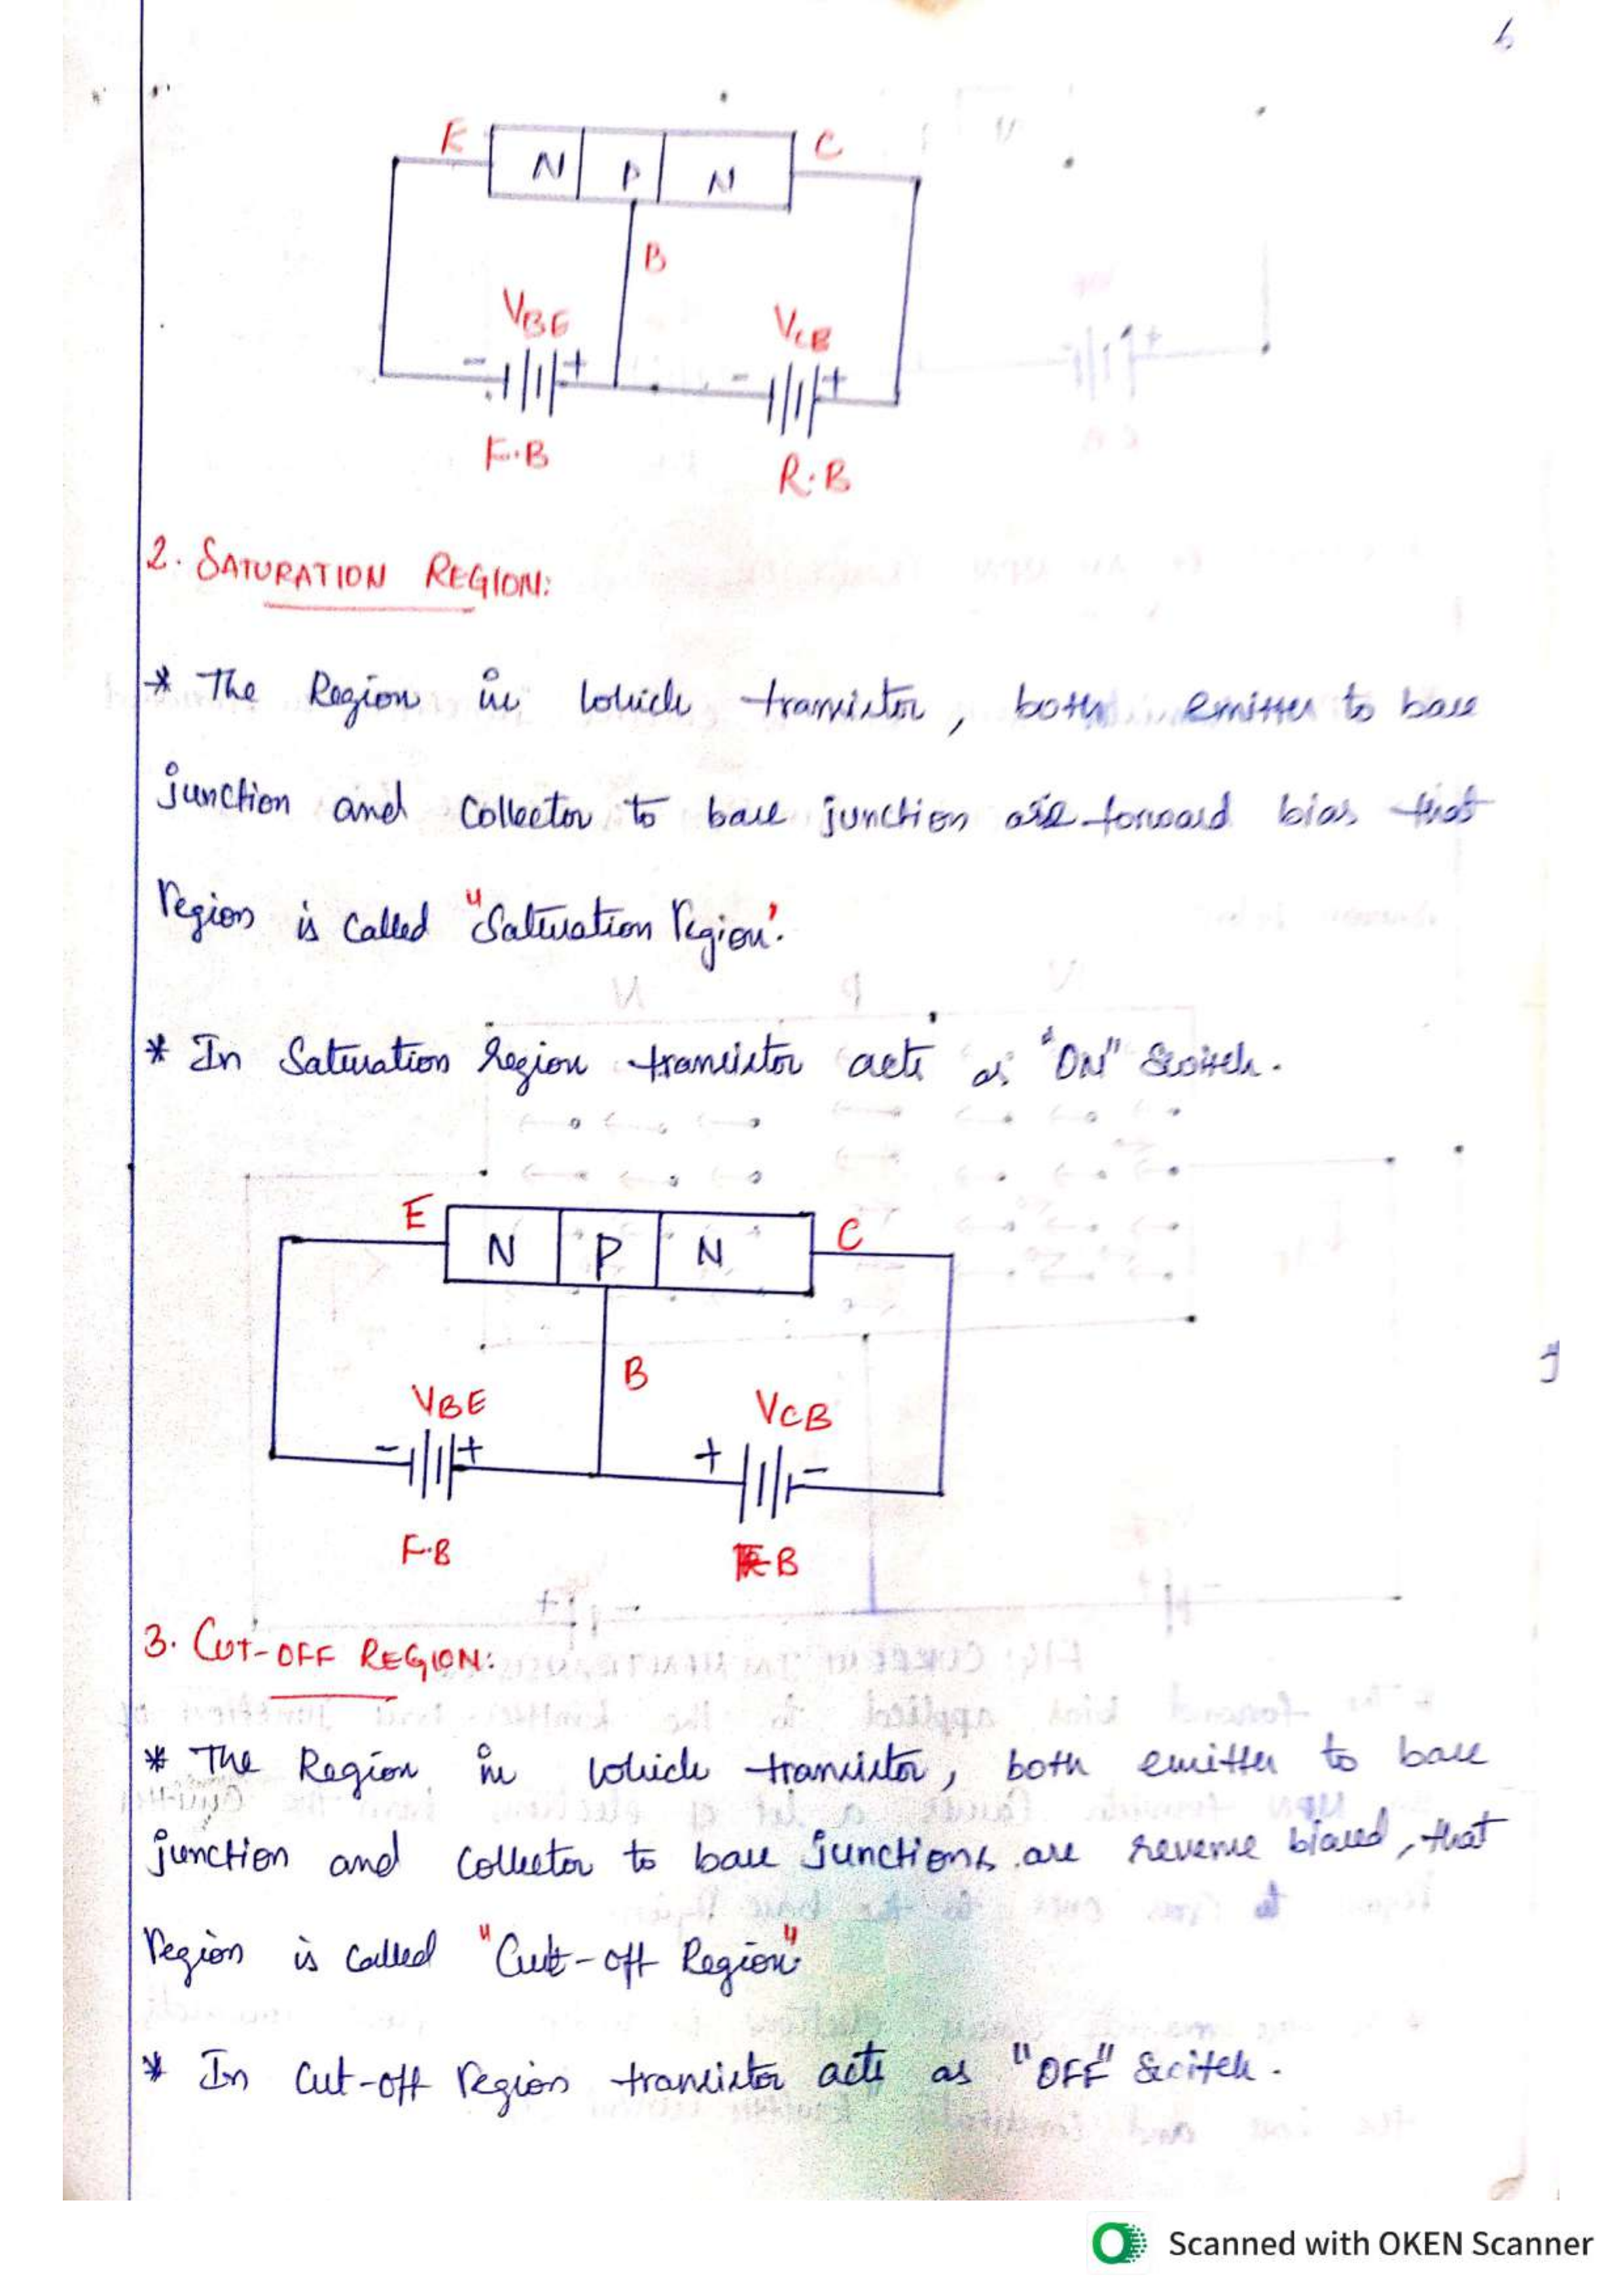 E N P N C
B
VBE VCB
- + - +
F.B R.B
2. SATURATION REGION:
* The Region in which transistor, both emitter to base
junction and collector to base junction are forward bias that
region is called "Saturation region".
* In Saturation region transistor acts as "ON" Switch.
E N P N C
B
VBE VCB
- + + -
F.B F.B
3. CUT-OFF REGION:
* The Region in which transistor, both emitter to base
junction and collector to base junctions are reverse biased, that
region is called "Cut-off Region"
* In cut-off region transistor acts as "OFF" Switch.
Scanned with OKEN Scanner